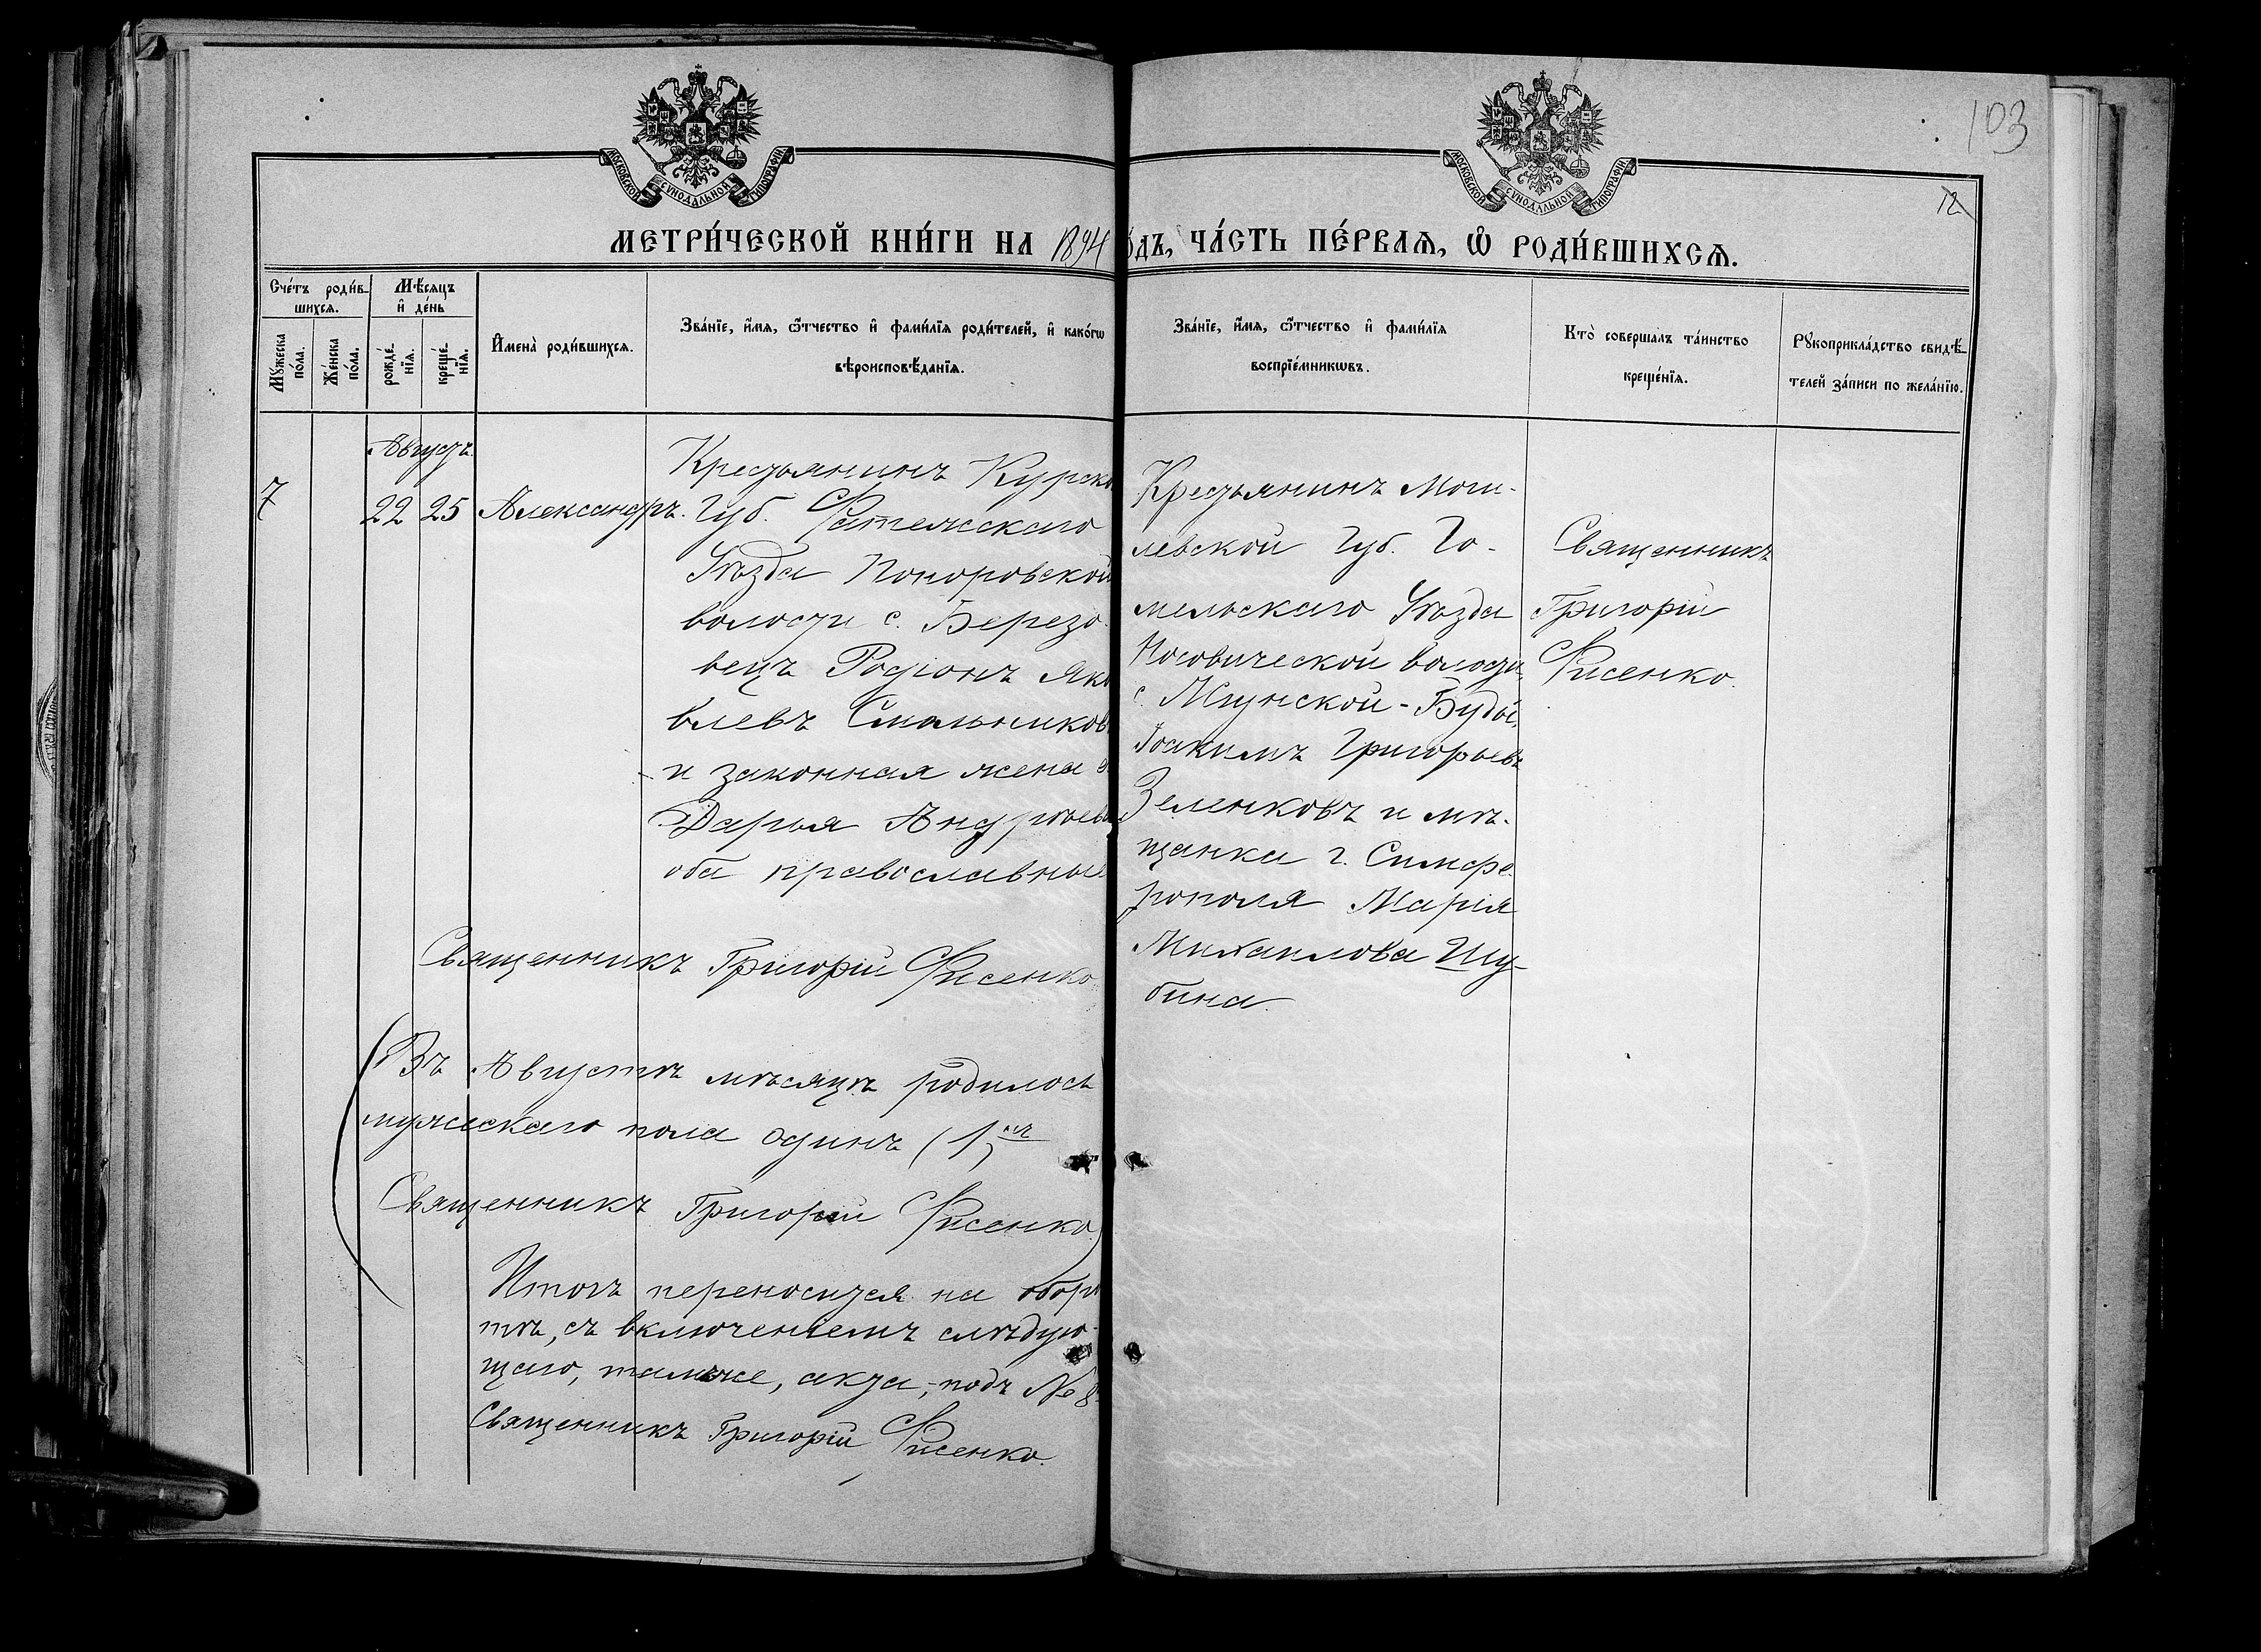 103
12
МОСКОВСКОЙ СѴНОДАЛЬНОЙ ТИПОГРАФІИ
МОСКОВСКОЙ СѴНОДАЛЬНОЙ ТИПОГРАФІИ
МЕТРИ́ЧЕСКОЙ КНИ́ГИ НА 1894
ѻ́дъ, ЧА́СТЬ ПЕ́РВАѦ, Ѡ҆ РОДИ́ВШИХСѦ.
Сче́тъ роди́в-
шихсѧ.
Мѣ́сяцъ
и҆ де́нь
Мꙋ́жеска по́ла.
Же́нска по́ла.
рожде́-
нїѧ.
креще́-
нїѧ.
И҆мена̀ роди́вшихсѧ.
Зва́нїе, и҆́мѧ, ѻ҆́тчество и҆ фами́лїѧ роди́телей, и҆ како́гѡ
вѣроисповѣ́данїѧ.
Зва́нїе, и҆́мѧ, ѻ҆́тчество и҆ фами́лїѧ
воспрїе́мникѡвъ.
Кто̀ совершалъ та́инство
креще́нїѧ.
Рꙋкоприкла́дство свидѣ́-
телей за́писи по жела́нїю.
Августъ.
7 22 25 Александръ.
Крестьянинъ Курско
Губ. Фатежскаго
Уѣзда Поныровской
волости с. Березо-
вецъ Родіонъ Яко
влевъ Смольниковъ
и законная жена е
Дарья Андрѣева
оба православные
Крестьянинъ Моги-
левской Губ. Го-
мельскаго Уѣзда
Носовической волости,
с. Мглинской-Буды,
Іоакимъ Григорьевъ
Зеленковъ и мѣ-
щанка г. Симфе-
рополя Марія
Михаилова Шу-
бина.
Священникъ
Григорій
Фисенко.
Священникъ Григорій Фисенко
(Въ Августѣ мѣсяцѣ родилось
мужескаго пола одинъ (1)
Священникъ Григорій Фисенко)
Итогъ переносится на оборо
тѣ, съ включеніемъ слѣдую-
щаго, также, акта, подъ № 8.
Священникъ Григорій Фисенко.